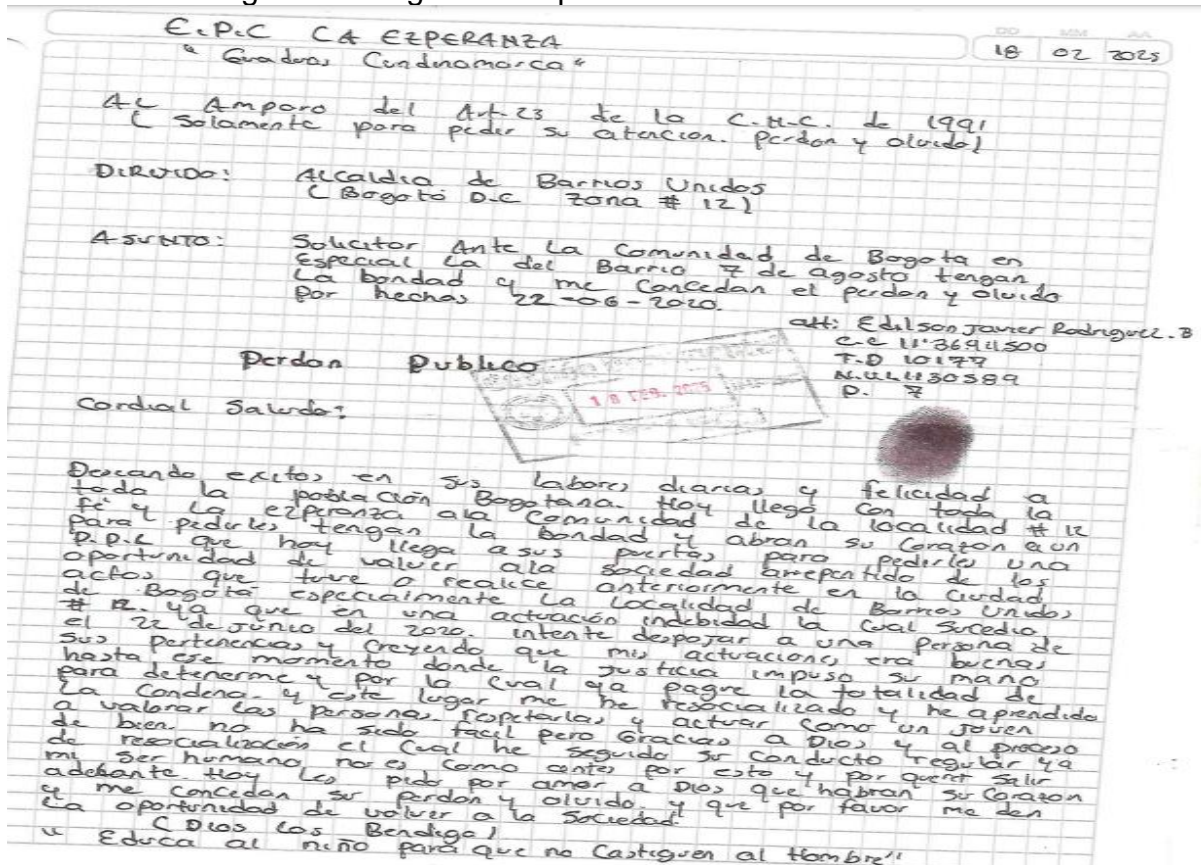 E.P.C CA EZPERANZA
DD MM AA
18 02 2025
" Guaduas Cundinamarca "
AL Amparo del Art. 23 de la C.N.C. de 1991
( Solamente para pedir su atencion. Perdon y olvido)
DIRIJIDO: Alcaldia de Barrios Unidos
( Bogotá D.C zona # 12)
ASUNTO: Solicitar Ante La Comunidad de Bogota en
Especial La del Barrio 7 de agosto tengan
La bondad y me Concedan el perdon y olvido
Por hechos 22-06-2020.
att: Edilson Javier Rodriguez. B
T.D 10177
P. 7
Perdon Publico
18 FEB. 2025
Cordial Saludo:
Deseando exitos en sus labores diarias y felicidad a
toda la poblacion Bogotana. Hoy llego con toda la
fé y La ezperanza ala Comunidad de la localidad # 12
para pedirles tengan la bondad y abran su Corazon a un
P.P.L que hoy llega a sus puertas para pedirles una
oportunidad de valver ala sociedad arrepentido de los
actos que tuve o realice anteriormente en la ciudad
de Bogotá especialmente La Localidad de Barrios Unidos
# 12. ya que en una actuación indebidad la cual Sucedio
el 22 de Junio del 2020. intente despojar a una persona de
sus pertenencias y creyendo que mis actuaciones era buenas
hasta ese momento donde la justicia impuso su mano
para detenerme y por lo cual ya pague la totalidad de
La Condena. y este lugar me he resocializado y he aprendido
a valorar las personas. respetarlas y actuar como un joven
de bien. no ha sido facil pero Gracias a Dios y al proceso
de resocialización el Cual he seguido su conducto regular ya
mi ser humano no es como antes por esto y por querer salir
adelante. Hoy les pido por amor a Dios que habran su Corazon
y me concedan su perdon y olvido. y que por favor me den
La oportunidad de volver a la sociedad.
( Dios Los Bendiga)
" Educa al niño para que no Castiguen al Hombre"